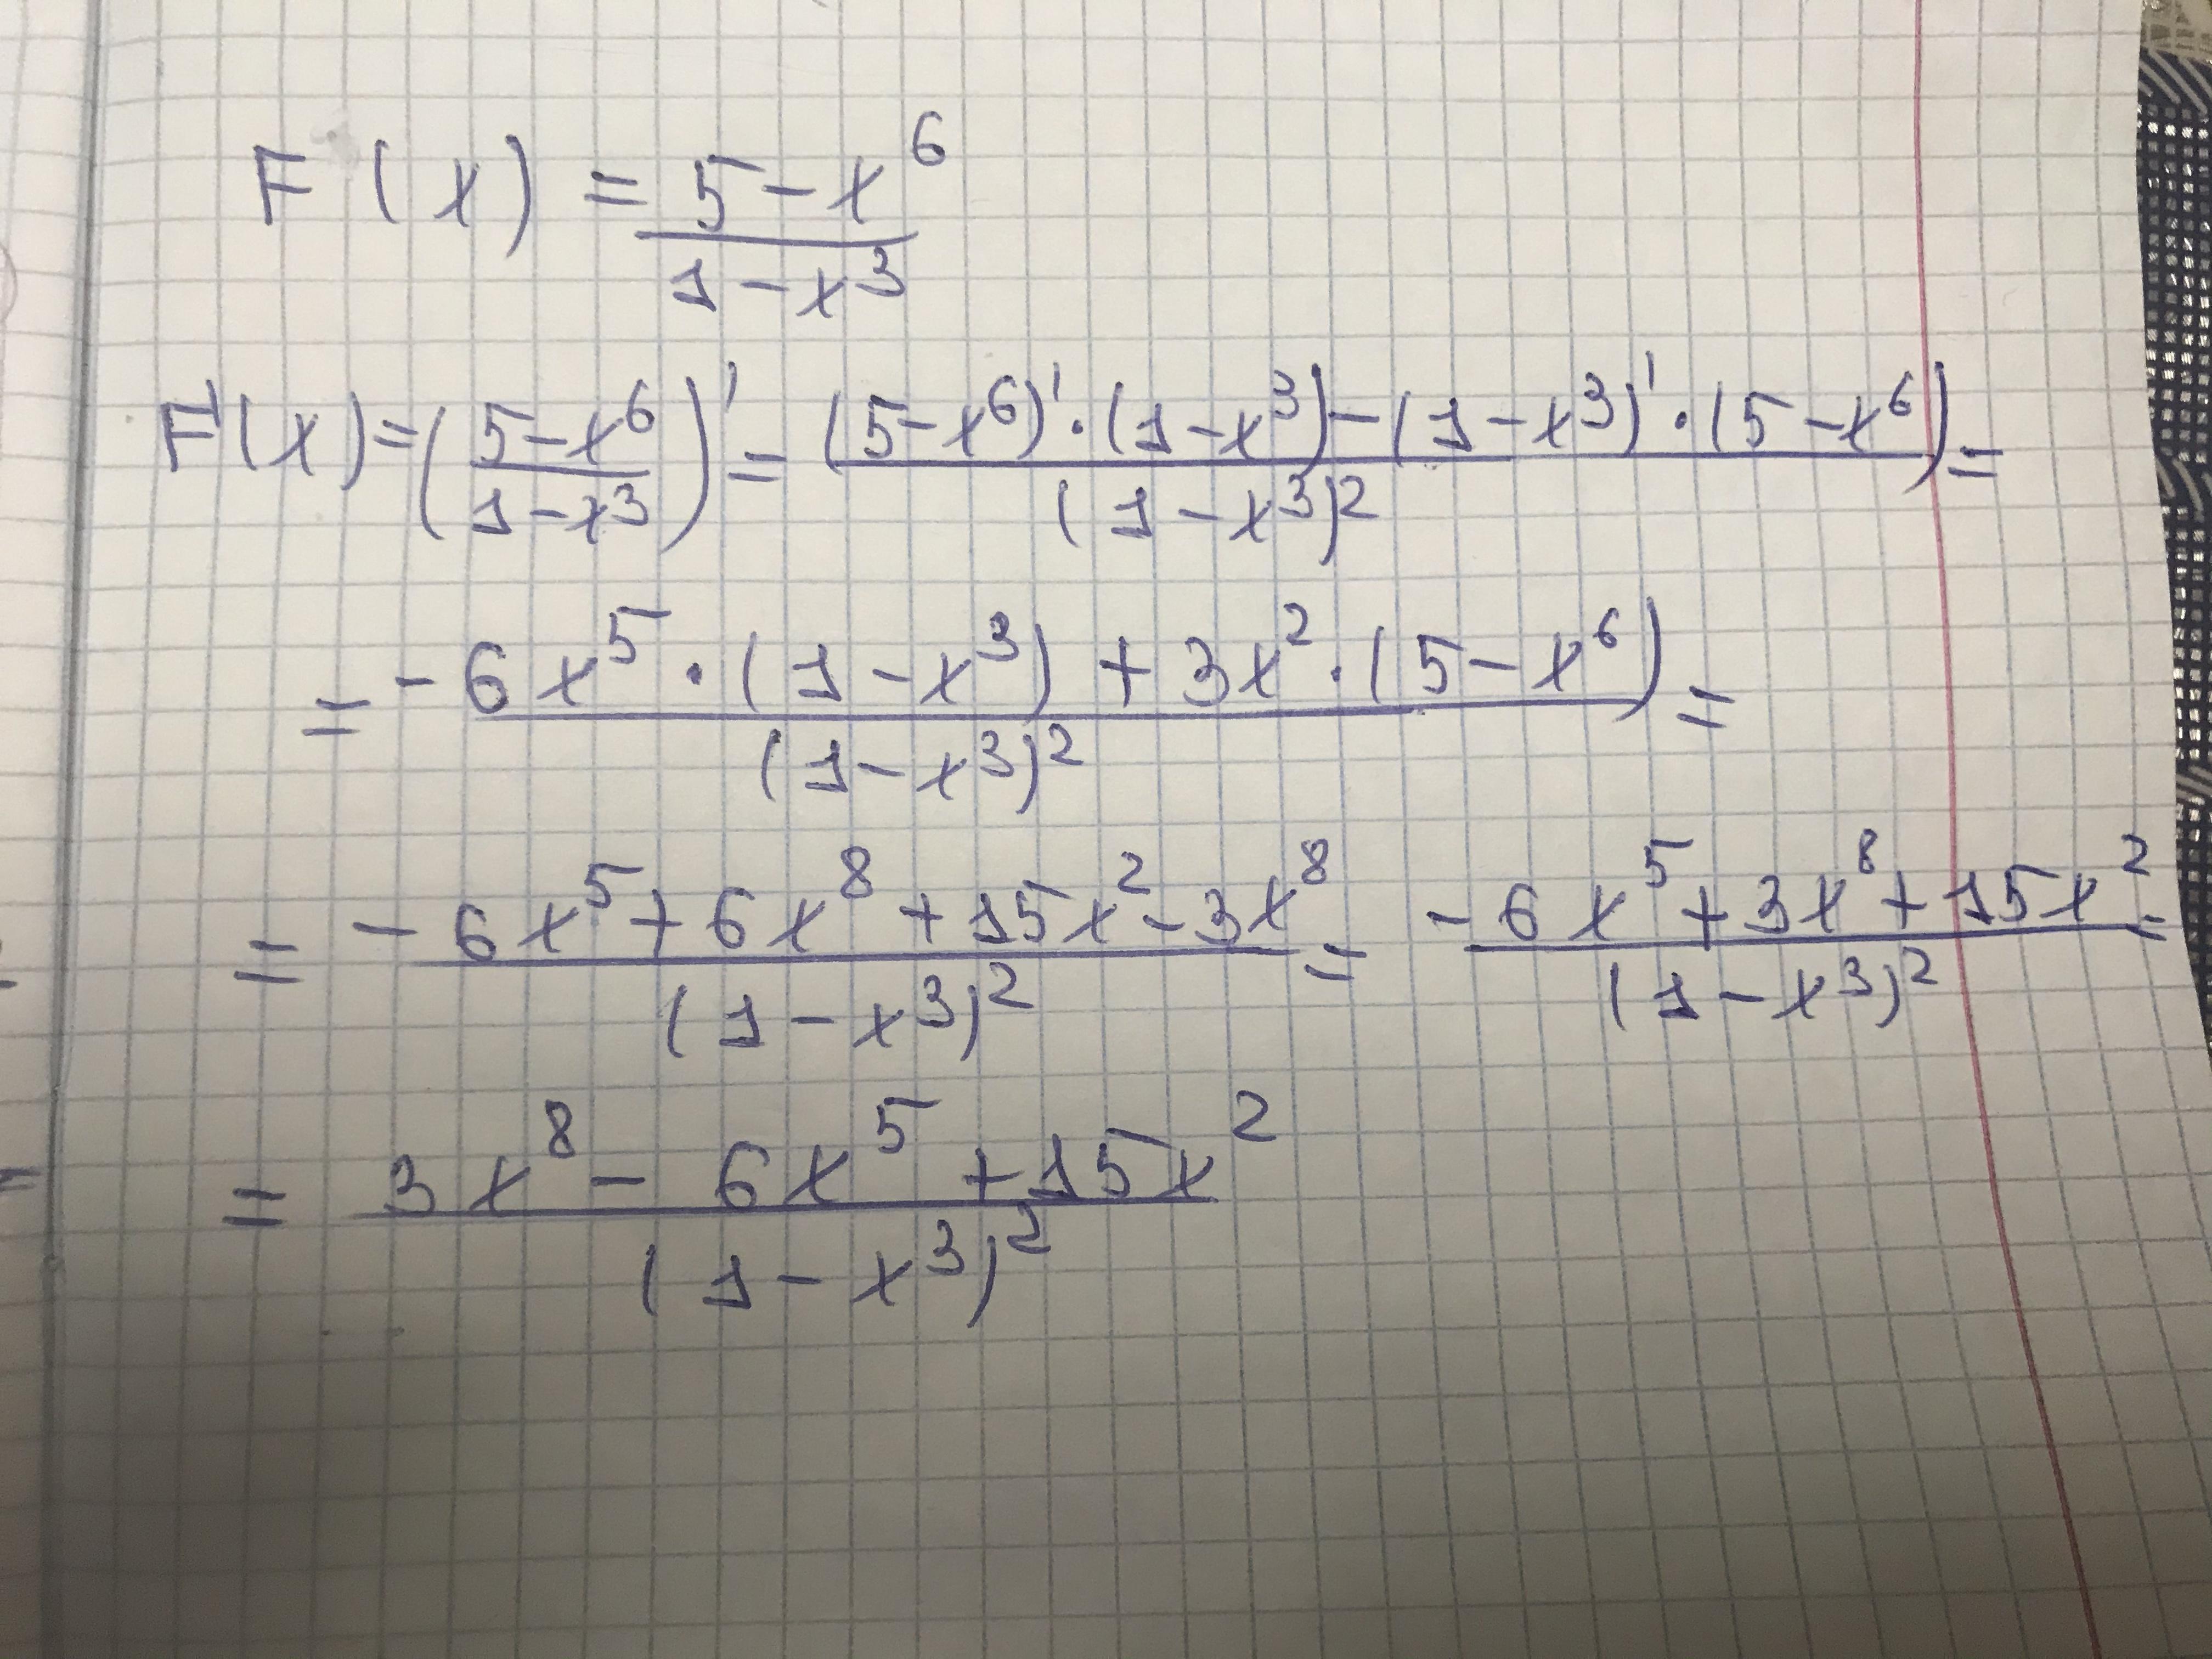 F(x) = (5-x^6)/(1-x^3)
F'(x) = ((5-x^6)/(1-x^3))' = ((5-x^6)'·(1-x^3)-(1-x^3)'·(5-x^6))/(1-x^3)^2 =
= (-6x^5·(1-x^3)+3x^2·(5-x^6))/(1-x^3)^2 =
= (-6x^5+6x^8+15x^2-3x^8)/(1-x^3)^2 = (-6x^5+3x^8+15x^2)/(1-x^3)^2 =
= (3x^8-6x^5+15x^2)/(1-x^3)^2